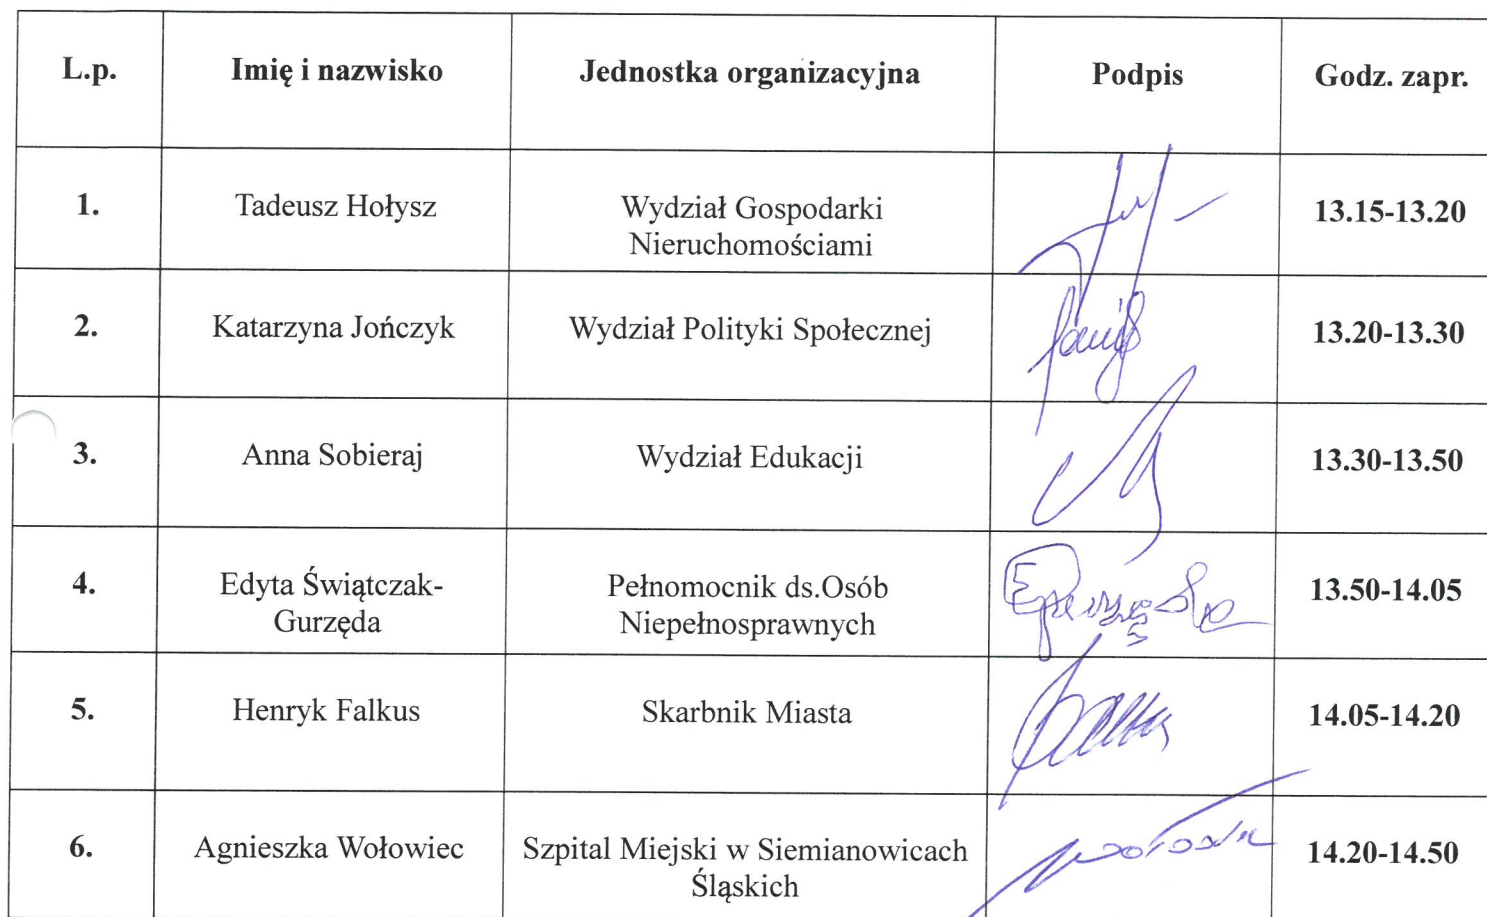 L.p. Imię i nazwisko Jednostka organizacyjna Podpis Godz. zapr.
1. Tadeusz Hołysz Wydział Gospodarki 13.15-13.20
Nieruchomościami
2. Katarzyna Jończyk Wydział Polityki Społecznej 13.20-13.30
3. Anna Sobieraj Wydział Edukacji 13.30-13.50
4. Edyta Świątczak- Pełnomocnik ds.Osób 13.50-14.05
Gurzęda Niepełnosprawnych
5. Henryk Falkus Skarbnik Miasta 14.05-14.20
6. Agnieszka Wołowiec Szpital Miejski w Siemianowicach 14.20-14.50
Śląskich